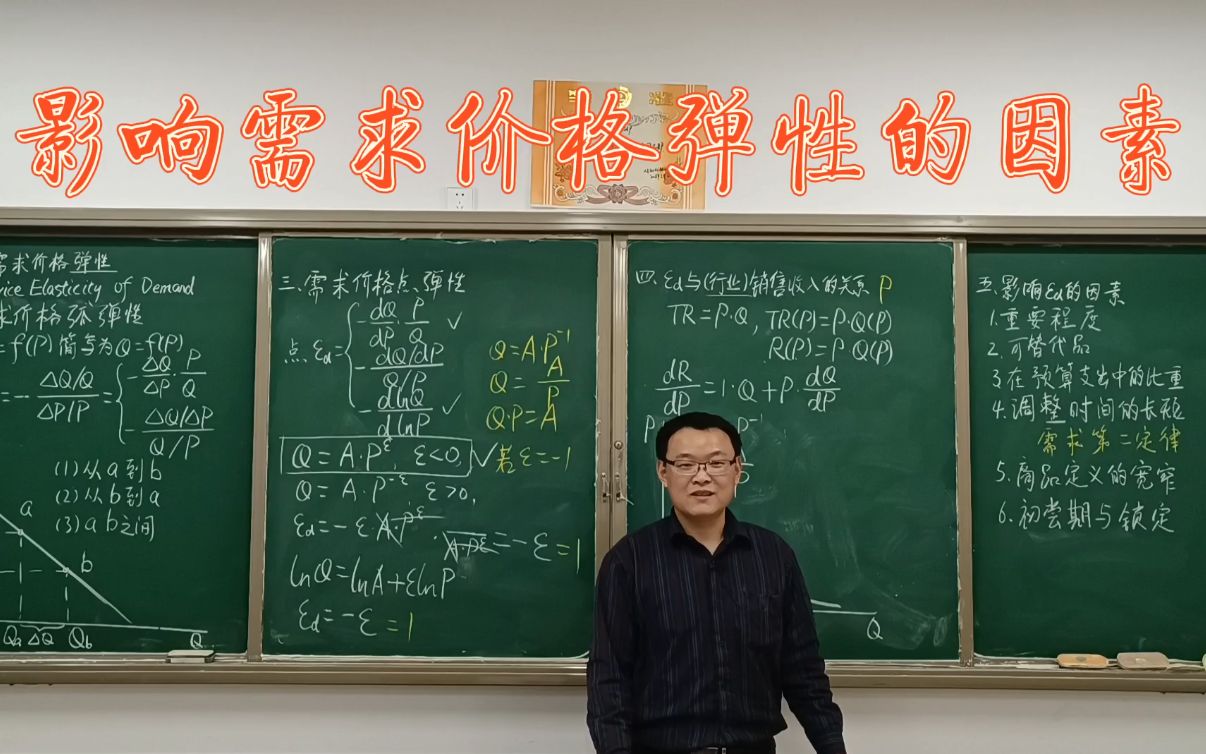 影响需求价格弹性的因素
需求价格弹性
ice Elasticity of Demand
求价格弧弹性
=f(P)简写为Q=f(P)
=-ΔQ/Q / ΔP/P = { -ΔQ/ΔP·P/Q
-ΔQ/ΔP / Q/P
(1)从a到b
(2)从b到a
(3)ab之间
a
b
Qa ΔQ Qb Q
三、需求价格点弹性
点εd= { -dQ/dP·P/Q ✓
-dQ/dP / Q/P
-dlnQ / dlnP ✓
Q=A·P^ε, ε<0, ✓
Q=A·P^-ε, ε>0,
εd=-ε·A·P^ε · / A·P^ε =-ε=1
lnQ=lnA+εlnP
εd=-ε=1
Q=A·P^-1
Q=A/P
Q·P=A
若ε=-1
四、εd与(行业)销售收入的关系 P
TR=P·Q, TR(P)=P·Q(P)
R(P)=P·Q(P)
dR/dP=1·Q+P·dQ/dP
Q
五、影响εd的因素
1.重要程度
2.可替代品
3.在预算支出中的比重
4.调整时间的长短
需求第二定律
5.商品定义的宽窄
6.初尝期与锁定